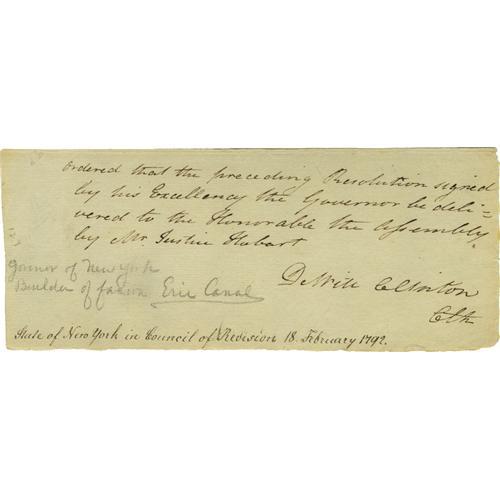 Ordered that the preceding Resolution signed
by his Excellency the Governor be deli=
vered to the Honorable the Assembly
by Mr. Justice Hobart
DeWitt Clinton
Clk
Govnor of New York
Builder of famous Erie Canal
State of New York in Council of Revision 18. February 1792.